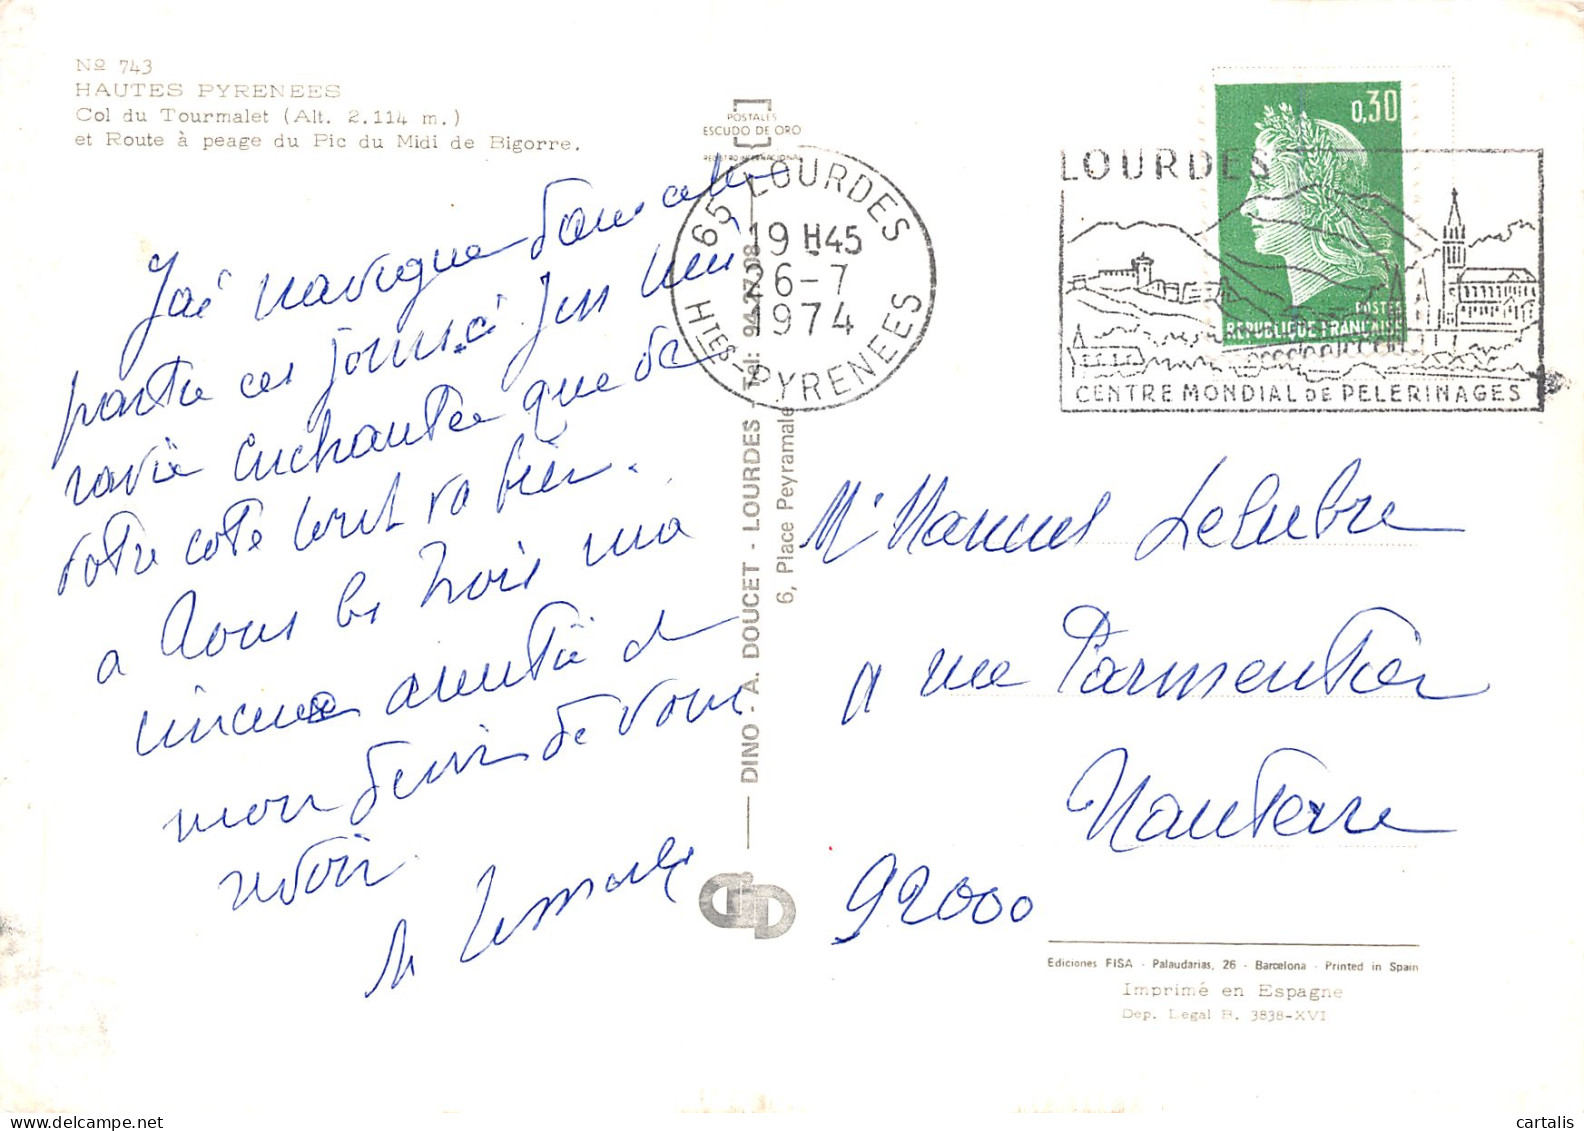 No 743
HAUTES PYRENEES
Col du Tourmalet (Alt. 2.114 m.)
et Route à peage du Pic du Midi de Bigorre.
J'ai navigué dans cette
partie ces jours ci j'en suis
ravie enchantée que de
votre coté tout va bien.
a vous les trois ma
sincere amitié
mon desir de vous
revoir
POSTALES
ESCUDO DE ORO
REGISTRO INTERNACIONAL
65 LOURDES
19 H45
26-7
1974
HTES-PYRENEES
DINO - A. DOUCET - LOURDES - Tel: 94.27.08
6, Place Peyramale
0,30
POSTES
REPUBLIQUE FRANÇAISE
LOURDES
CENTRE MONDIAL DE PELERINAGES
Mr Manuel
rue Parmentier
Nanterre
92000
Ediciones FISA - Palaudarias, 26 - Barcelona - Printed in Spain
Imprimé en Espagne
Dep. Legal B. 3838-XVI
cartalis